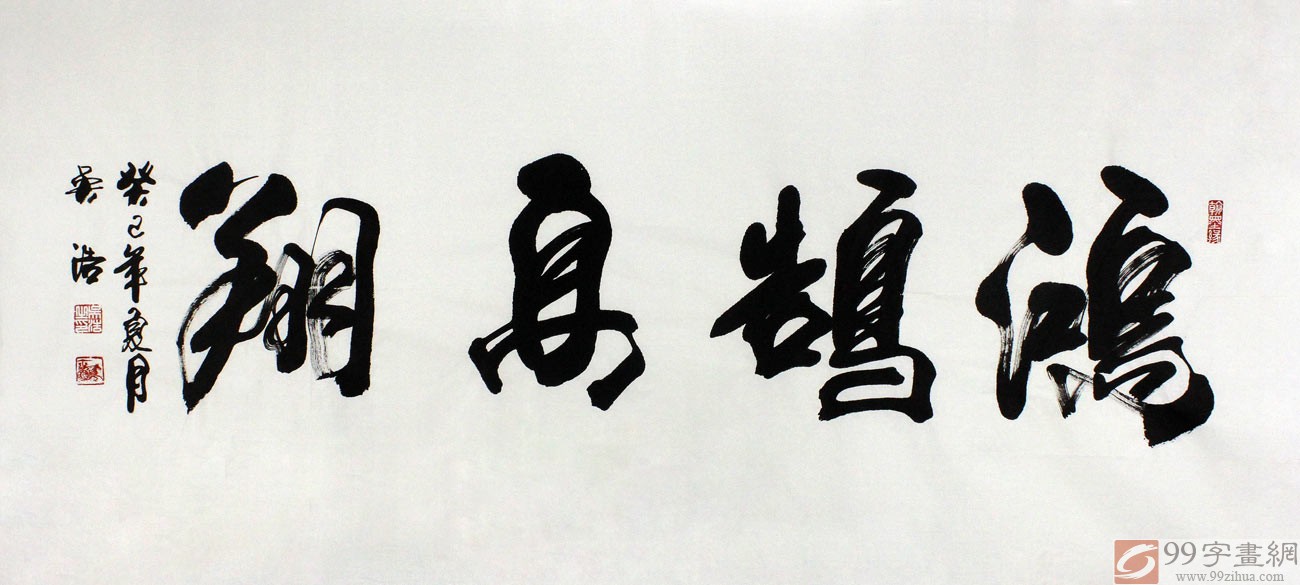 鴻鵠高翔
癸巳年夏月
吳浩
99字畫網
www.99zihua.com